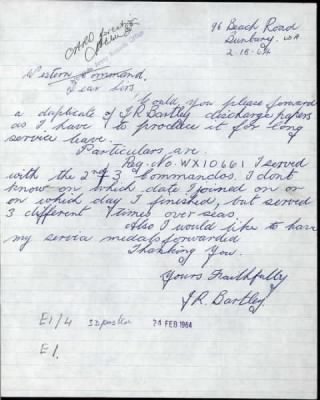 96 Beach Road
Bunbury. WA
2-18-64
CARO
Western Command.
Dear Sirs.
Would you please forward
a duplicate of J R Bartley discharge papers
as I have to produce it for long
service leave.
Particulars are.
Reg. No. WX10661 I served
with the 2nd & 3 Commandos. I dont
know on which date I joined on or
on which day I finished, but served
3 different times over seas.
Also I would like to have
my service medals forwarded
Thanking You.
Yours Faithfully
J.R. Bartley.
E1/4
24 FEB 1964
E1.